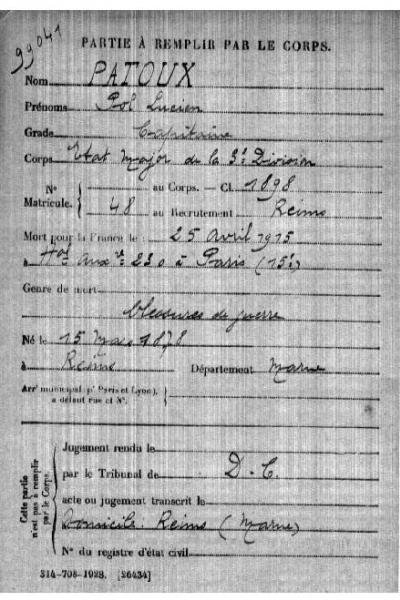 99041
PARTIE À REMPLIR PAR LE CORPS.
Nom PATOUX
Prénoms Pol Lucien
Grade Capitaine
Corps Etat Major de la 3e Division
N° au Corps. — Cl. 1898
Matricule. 48 au Recrutement Reims
Mort pour la France le : 25 Avril 1915
à Hoal auxre 230 à Paris (15e)
Genre de mort
blessures de guerre
Né le 15 Mars 1878
à Reims Département Marne
Arrt municipal (pr Paris et Lyon),
à défaut rue et N°.
Cette partie
n'est pas à remplir
par le Corps.
Jugement rendu le
par le Tribunal de D. C.
acte ou jugement transcrit le
Domicile: Reims (Marne)
N° du registre d'état civil
314-708-1928. [26434]